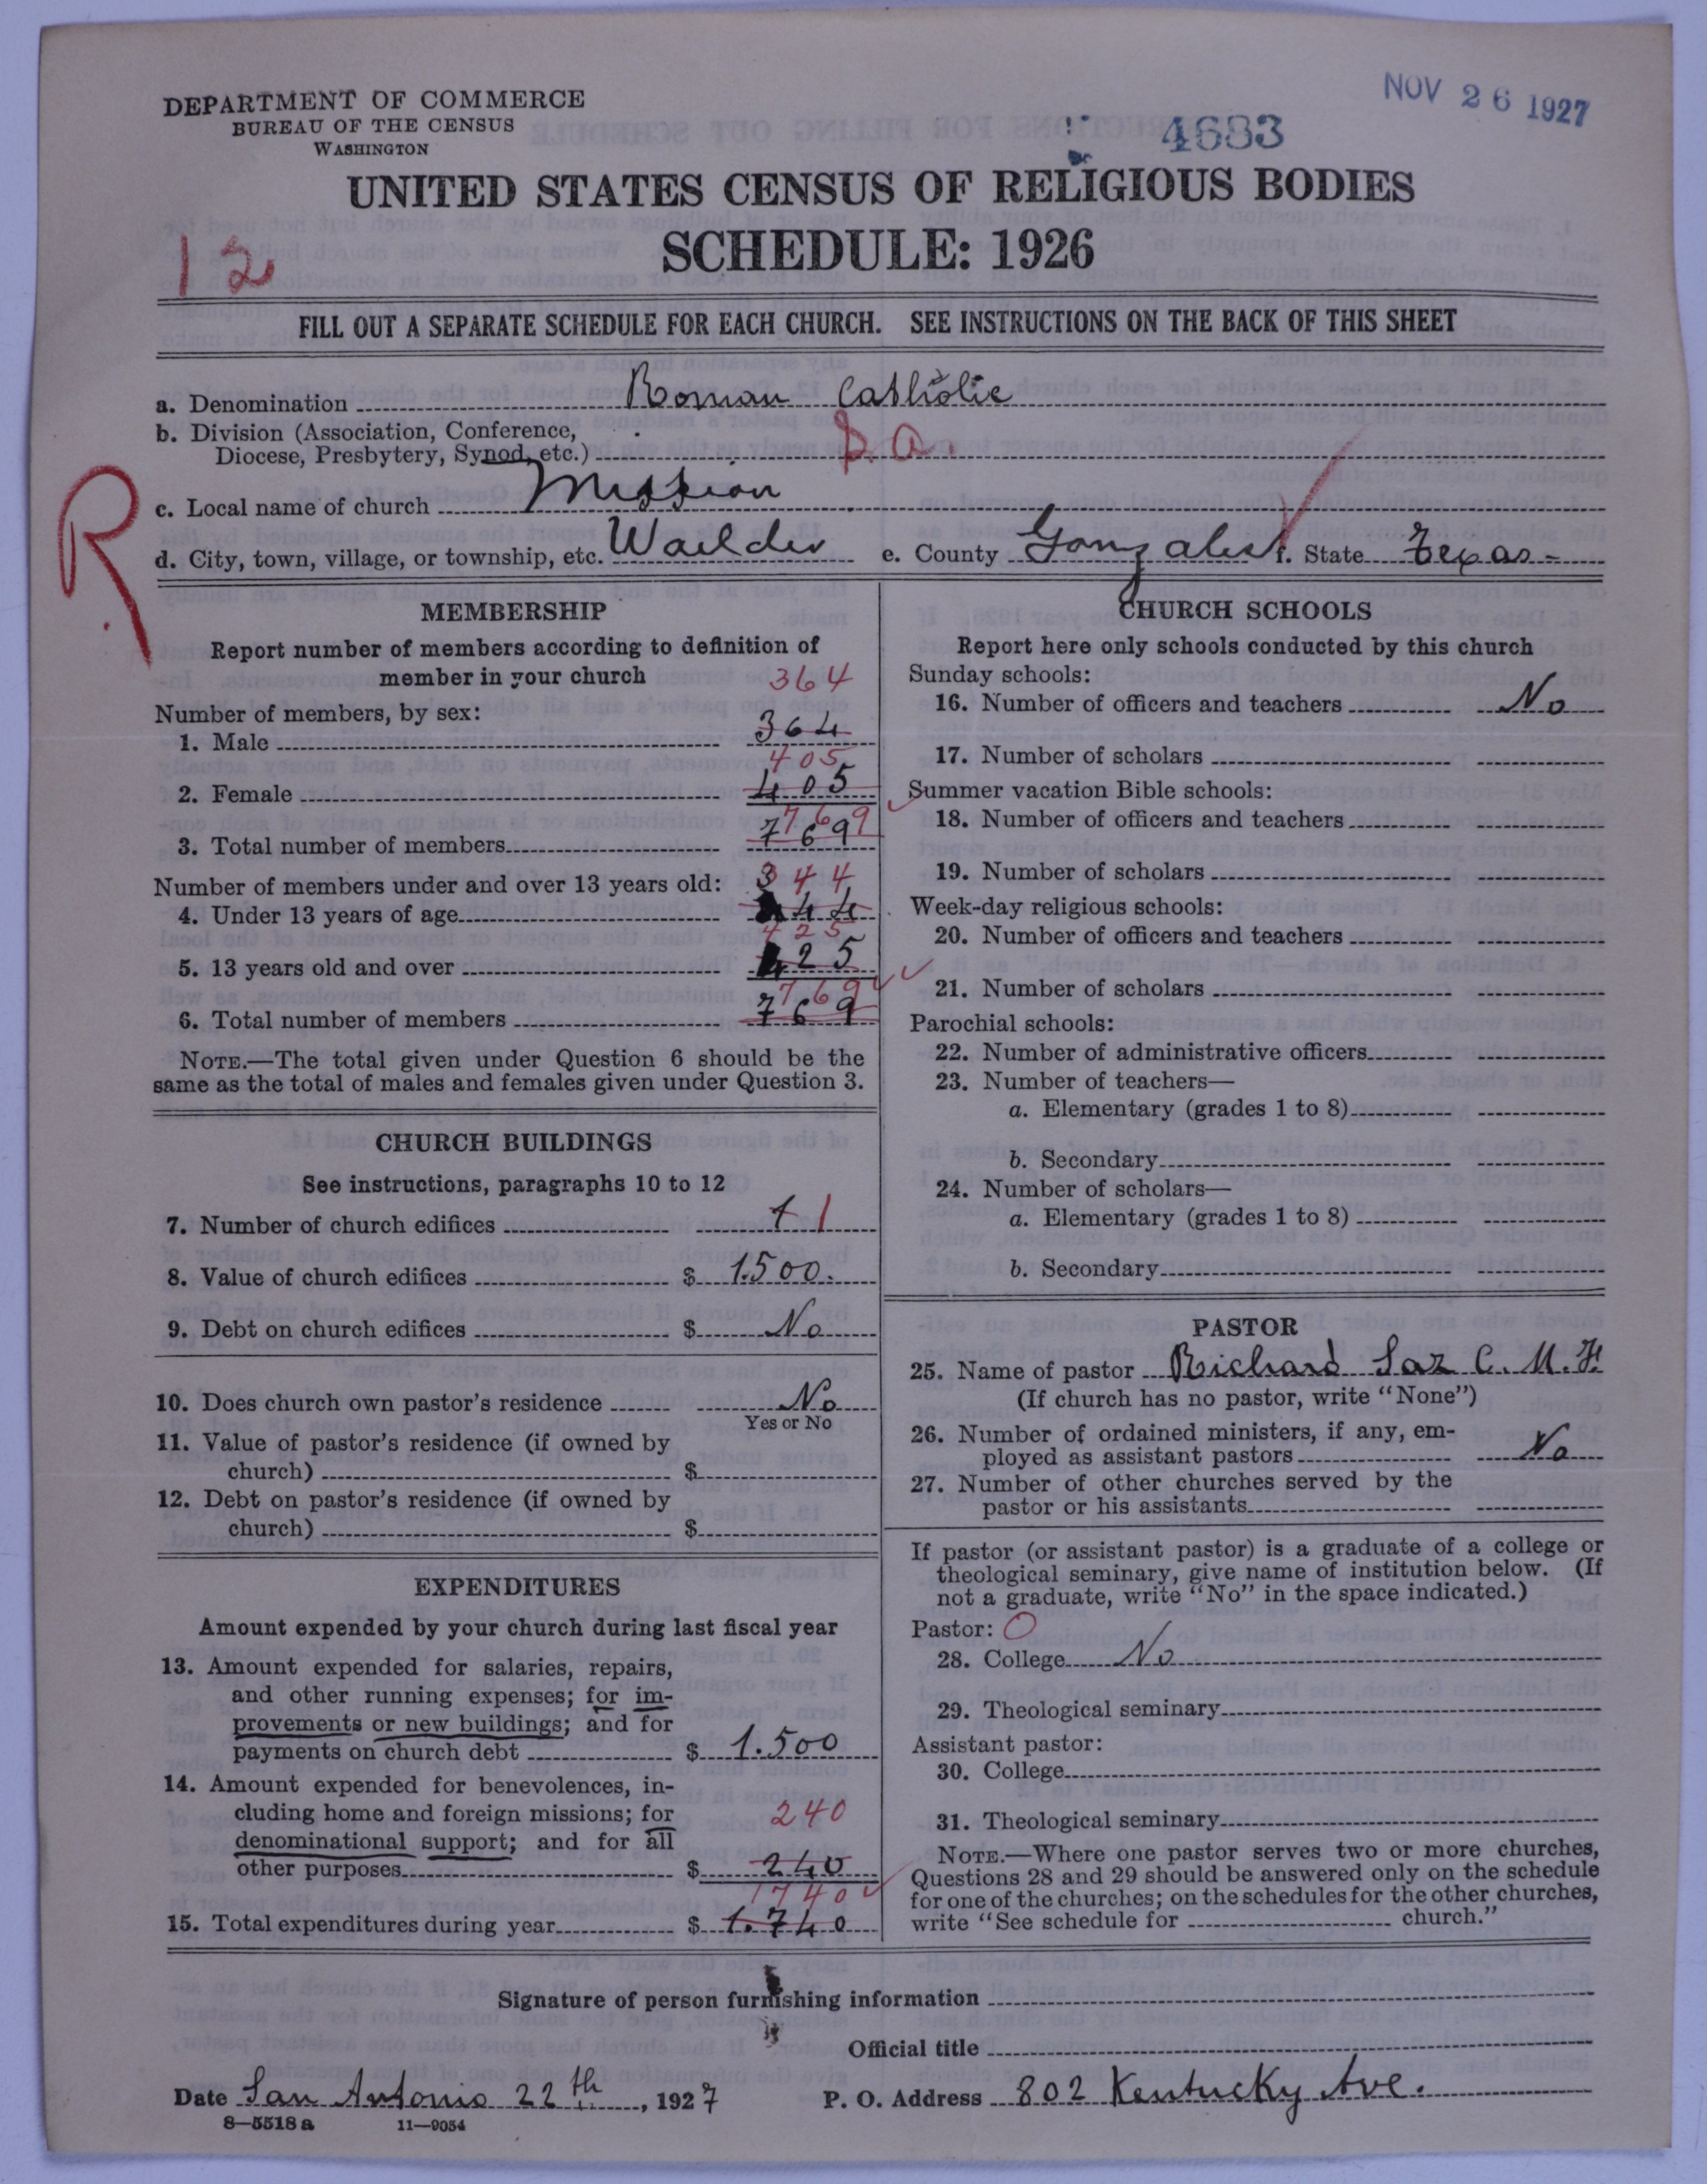 DEPARTMENT OF COMMERCE
BUREAU OF THE CENSUS
WASHINGTON
NOV 26 1927
4683
UNITED STATES CENSUS OF RELIGIOUS BODIES
SCHEDULE: 1926
12
FILL OUT A SEPARATE SCHEDULE FOR EACH CHURCH. SEE INSTRUCTIONS ON THE BACK OF THIS SHEET
a. Denomination Roman Catholic
b. Division (Association, Conference,
Diocese, Presbytery, Synod, etc.) S. A.
R
c. Local name of church Mission
d. City, town, village, or township, etc. Waelder e. County Gonzales f. State Texas-
MEMBERSHIP
Report number of members according to definition of
member in your church
364
Number of members, by sex:
1. Male 364
405
2. Female 405
769
3. Total number of members 769
Number of members under and over 13 years old: 344
4. Under 13 years of age 44
425
5. 13 years old and over 425
769
6. Total number of members 769
NOTE.—The total given under Question 6 should be the
same as the total of males and females given under Question 3.
CHURCH BUILDINGS
See instructions, paragraphs 10 to 12
7. Number of church edifices 1 1
8. Value of church edifices $ 1.500.
9. Debt on church edifices $ No
10. Does church own pastor's residence No
Yes or No
11. Value of pastor's residence (if owned by
church) $
12. Debt on pastor's residence (if owned by
church) $
EXPENDITURES
Amount expended by your church during last fiscal year
13. Amount expended for salaries, repairs,
and other running expenses; for im-
provements or new buildings; and for
payments on church debt $ 1.500
14. Amount expended for benevolences, in-
cluding home and foreign missions; for 240
denominational support; and for all
other purposes $ 240
1740
15. Total expenditures during year $ 1.740
CHURCH SCHOOLS
Report here only schools conducted by this church
Sunday schools:
16. Number of officers and teachers No
17. Number of scholars
Summer vacation Bible schools:
18. Number of officers and teachers
19. Number of scholars
Week-day religious schools:
20. Number of officers and teachers
21. Number of scholars
Parochial schools:
22. Number of administrative officers
23. Number of teachers—
a. Elementary (grades 1 to 8)
b. Secondary
24. Number of scholars—
a. Elementary (grades 1 to 8)
b. Secondary
PASTOR
25. Name of pastor Richard Saz C. M. F.
(If church has no pastor, write "None")
26. Number of ordained ministers, if any, em-
ployed as assistant pastors No
27. Number of other churches served by the
pastor or his assistants
If pastor (or assistant pastor) is a graduate of a college or
theological seminary, give name of institution below. (If
not a graduate, write "No" in the space indicated.)
Pastor: O
28. College No
29. Theological seminary
Assistant pastor:
30. College
31. Theological seminary
NOTE.—Where one pastor serves two or more churches,
Questions 28 and 29 should be answered only on the schedule
for one of the churches; on the schedules for the other churches,
write "See schedule for church."
Signature of person furnishing information
Official title
Date San Antonio 22th, 1927 P. O. Address 802 Kentucky Ave.
8—5518 a 11—9054